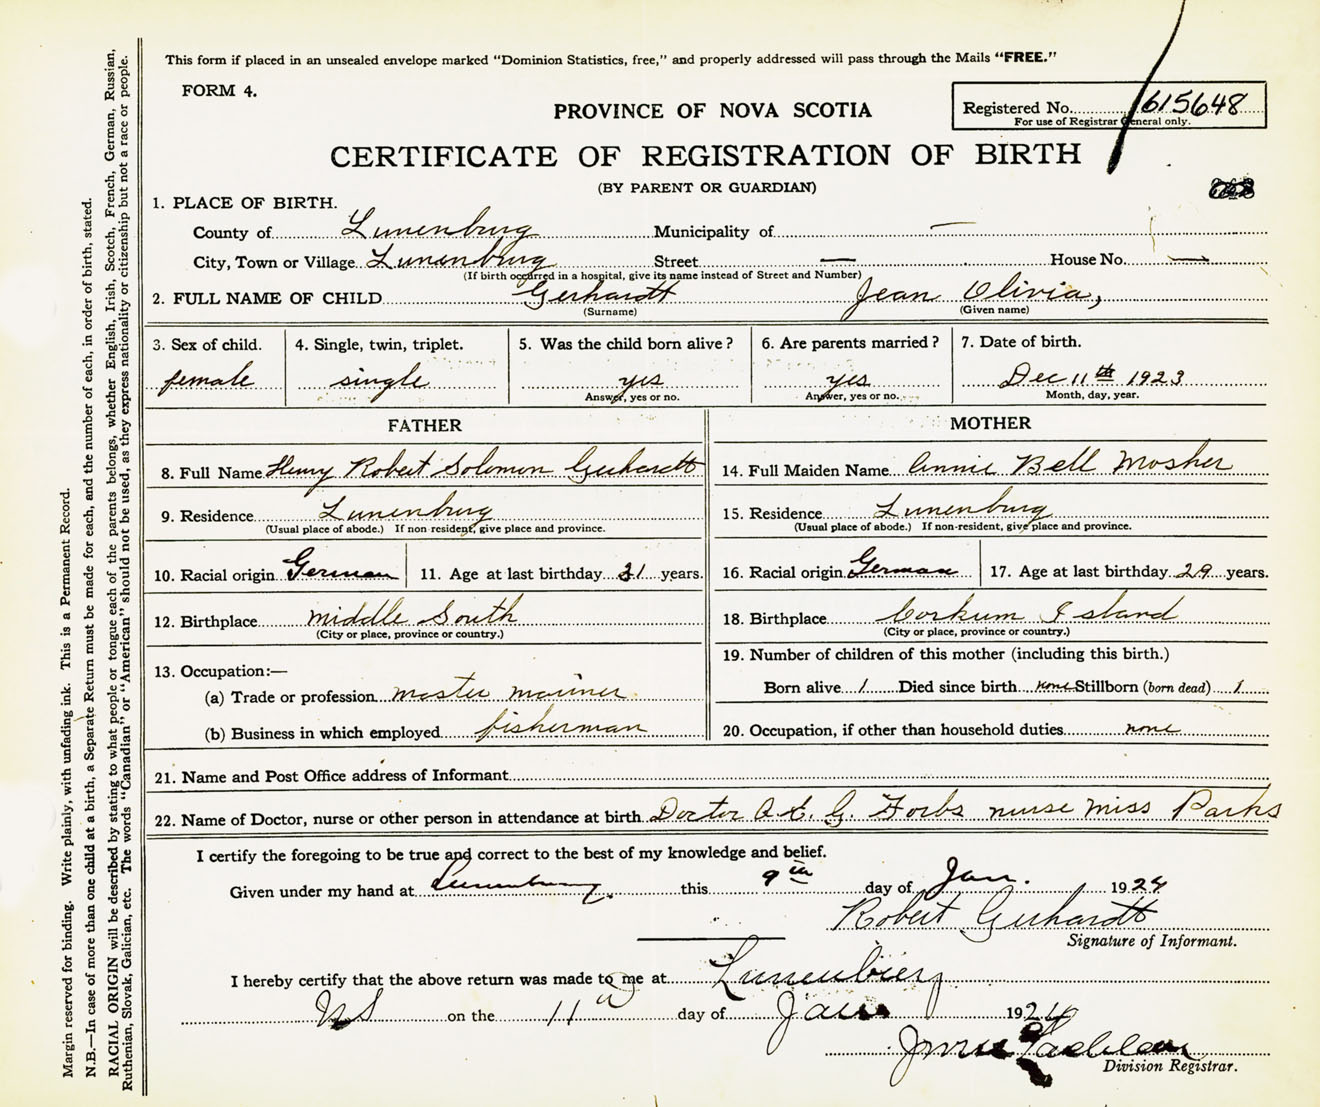 This form if placed in an unsealed envelope marked "Dominion Statistics, free," and properly addressed will pass through the Mails "FREE."
FORM 4.
PROVINCE OF NOVA SCOTIA
Registered No. 615648
For use of Registrar General only.
CERTIFICATE OF REGISTRATION OF BIRTH
(BY PARENT OR GUARDIAN)
1. PLACE OF BIRTH.
County of Lunenburg Municipality of —
City, Town or Village Lunenburg Street — House No. —
(If birth occurred in a hospital, give its name instead of Street and Number)
2. FULL NAME OF CHILD Gerhardt Jean Olivia,
(Surname) (Given name)
3. Sex of child. 4. Single, twin, triplet. 5. Was the child born alive? 6. Are parents married? 7. Date of birth.
female single yes yes Dec 11th 1923
Answer, yes or no. Answer, yes or no. Month, day, year.
FATHER MOTHER
8. Full Name Henry Robert Solomon Gerhardt 14. Full Maiden Name Annie Bell Mosher
9. Residence Lunenburg 15. Residence Lunenburg
(Usual place of abode.) If non-resident, give place and province. (Usual place of abode.) If non-resident, give place and province.
10. Racial origin German 11. Age at last birthday 31 years. 16. Racial origin German 17. Age at last birthday 29 years.
12. Birthplace Middle South 18. Birthplace Corkum Island
(City or place, province or country.) (City or place, province or country.)
13. Occupation:— 19. Number of children of this mother (including this birth.)
(a) Trade or profession master mariner Born alive 1 Died since birth none Stillborn (born dead) 1
(b) Business in which employed fisherman 20. Occupation, if other than household duties none
21. Name and Post Office address of Informant
22. Name of Doctor, nurse or other person in attendance at birth Doctor G. Forbs nurse Miss Parks
I certify the foregoing to be true and correct to the best of my knowledge and belief.
Given under my hand at Lunenburg this 9th day of Jan. 1924
Robert Gerhardt
Signature of Informant.
I hereby certify that the above return was made to me at Lunenburg
NS on the 11th day of Jan 1924
Division Registrar.
Margin reserved for binding. Write plainly, with unfading ink. This is a Permanent Record.
N.B.—In case of more than one child at a birth, a Separate Return must be made for each, and the number of each, in order of birth, stated.
RACIAL ORIGIN will be described by stating to what people or tongue each of the parents belongs, whether English, Irish, Scotch, French, German, Russian,
Ruthenian, Slovak, Galician, etc. The words "Canadian" or "American" should not be used, as they express nationality or citizenship but not a race or people.